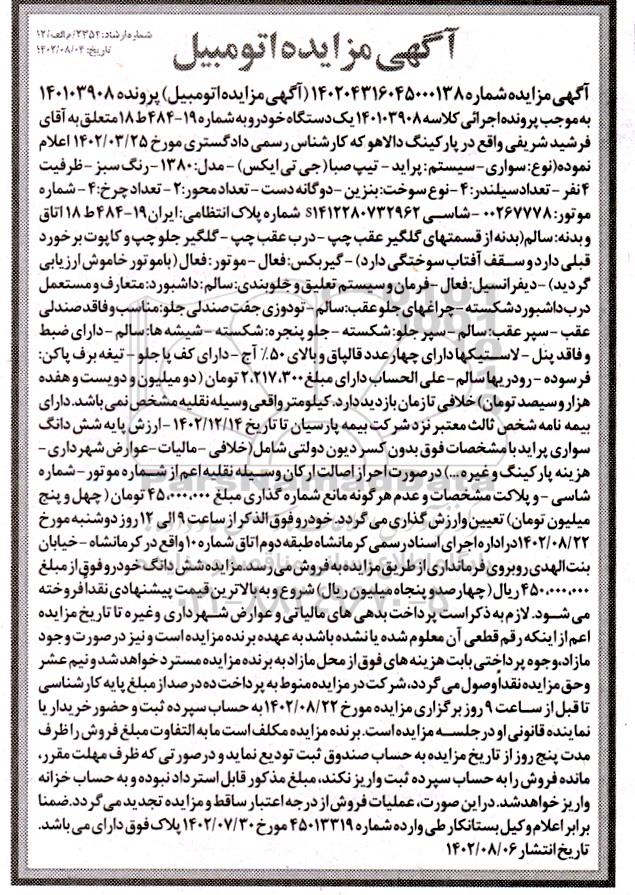 شماره ارشاد: ۲۳۵۲/م الف/۱۲
تاریخ: ۱۴۰۲/۰۸/۰۴
آگهی مزایده اتومبیل
آگهی مزایده شماره ۱۴۰۲۰۴۳۱۶۰۴۵۰۰۰۱۳۸ (آگهی مزایده اتومبیل) پرونده ۱۴۰۱۰۳۹۰۸
به موجب پرونده اجرائی کلاسه ۱۴۰۱۰۳۹۰۸ یک دستگاه خودرو به شماره ۱۹-۴۸۴ط۱۸ متعلق به آقای
فرشید شریفی واقع در پارکینگ دالاهو که کارشناس رسمی دادگستری مورخ ۱۴۰۲/۰۳/۲۵ اعلام
نموده (نوع: سواری – سیستم: پراید – تیپ صبا (جی تی ایکس) – مدل: ۱۳۸۰ – رنگ سبز – ظرفیت
۴ نفر – تعداد سیلندر: ۴ – نوع سوخت: بنزین – دوگانه دست – تعداد محور: ۲ – تعداد چرخ: ۴ – شماره
موتور: ۰۰۲۶۷۷۷۸ – شاسی S۱۴۱۲۲۸۰۷۳۲۹۶۲ شماره پلاک انتظامی: ایران ۱۹-۴۸۴ط۱۸ اتاق
و بدنه: سالم (بدنه از قسمتهای گلگیر عقب چپ – درب عقب چپ – گلگیر جلو چپ و کاپوت برخورد
قبلی دارد و سقف آفتاب سوختگی دارد) – گیربکس: فعال – موتور: فعال (با موتور خاموش ارزیابی
گردید) – دیفرانسیل: فعال – فرمان و سیستم تعلیق و جلوبندی: سالم: داشبورد: متعارف و مستعمل
درب داشبورد شکسته – چراغهای جلو عقب: سالم – تودوزی جفت صندلی جلو: مناسب و فاقد صندلی
عقب – سپر عقب: سالم – سپر جلو: شکسته – جلو پنجره: شکسته – شیشه ها: سالم – دارای ضبط
و فاقد پنل – لاستیکها دارای چهار عدد قالپاق و بالای ۵۰٪ آج – دارای کف پا جلو – تیغه برف پاکن:
فرسوده – رودریها سالم – علی الحساب دارای مبلغ ۲.۲۱۷.۳۰۰ تومان (دو میلیون و دویست و هفده
هزار و سیصد تومان) خلافی تا زمان بازدید دارد. کیلومتر واقعی وسیله نقلیه مشخص نمی باشد. دارای
بیمه نامه شخص ثالث معتبر نزد شرکت بیمه پارسیان تا تاریخ ۱۴۰۲/۱۲/۱۴ – ارزش پایه شش دانگ
سواری پراید با مشخصات فوق بدون کسر دیون دولتی شامل (خلافی – مالیات – عوارض شهرداری –
هزینه پارکینگ و غیره ...) در صورت احراز اصالت ارکان وسیله نقلیه اعم از شماره موتور – شماره
شاسی – و پلاکت مشخصات و عدم هرگونه مانع شماره گذاری مبلغ ۴۵,۰۰۰,۰۰۰ تومان (چهل و پنج
میلیون تومان) تعیین وارزش گذاری می گردد. خودرو فوق الذکر از ساعت ۹ الی ۱۲ روز دوشنبه مورخ
۱۴۰۲/۰۸/۲۲ در اداره اجرای اسناد رسمی کرمانشاه طبقه دوم اتاق شماره ۱۰ واقع در کرمانشاه – خیابان
بنت الهدی روبروی فرمانداری از طریق مزایده به فروش می رسد. مزایده شش دانگ خودرو فوق از مبلغ
۴۵۰,۰۰۰,۰۰۰ ریال (چهارصد و پنجاه میلیون ریال) شروع و به بالاترین قیمت پیشنهادی نقداً فروخته
می شود. لازم به ذکر است پرداخت بدهی های مالیاتی و عوارض شهرداری وغیره تا تاریخ مزایده
اعم از اینکه رقم قطعی آن معلوم شده یا نشده باشد به عهده برنده مزایده است و نیز در صورت وجود
مازاد، وجوه پرداختی بابت هزینه های فوق از محل مازاد به برنده مزایده مسترد خواهد شد و نیم عشر
و حق مزایده نقداً وصول می گردد، شرکت در مزایده منوط به پرداخت ده درصد از مبلغ پایه کارشناسی
تا قبل از ساعت ۹ روز برگزاری مزایده مورخ ۱۴۰۲/۰۸/۲۲ به حساب سپرده ثبت و حضور خریدار یا
نماینده قانونی او در جلسه مزایده است. برنده مزایده مکلف است ما به التفاوت مبلغ فروش را ظرف
مدت پنج روز از تاریخ مزایده به حساب صندوق ثبت تودیع نماید و در صورتی که ظرف مهلت مقرر،
مانده فروش را به حساب سپرده ثبت واریز نکند، مبلغ مذکور قابل استرداد نبوده و به حساب خزانه
واریز خواهد شد. در این صورت، عملیات فروش از درجه اعتبار ساقط و مزایده تجدید می گردد. ضمنا
برابر اعلام وکیل بستانکار طی وارده شماره ۴۵۰۱۳۳۱۹ مورخ ۱۴۰۲/۰۷/۳۰ پلاک فوق دارای می باشد.
تاریخ انتشار ۱۴۰۲/۰۸/۰۶
ParsNamadData